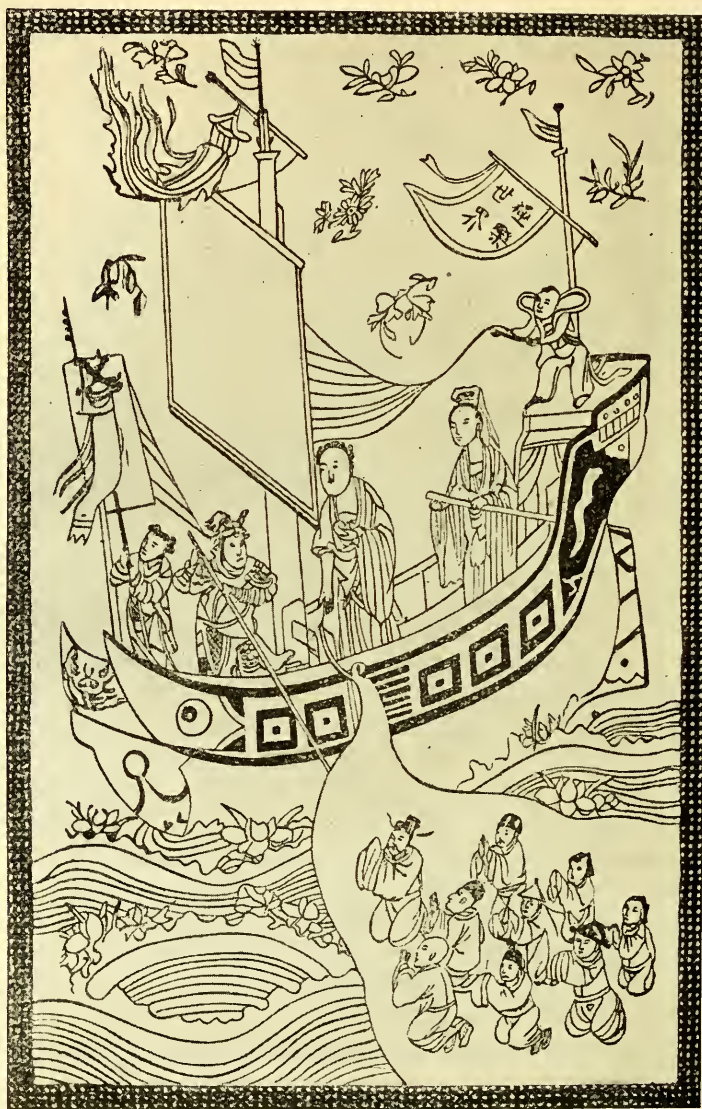 極樂
世界